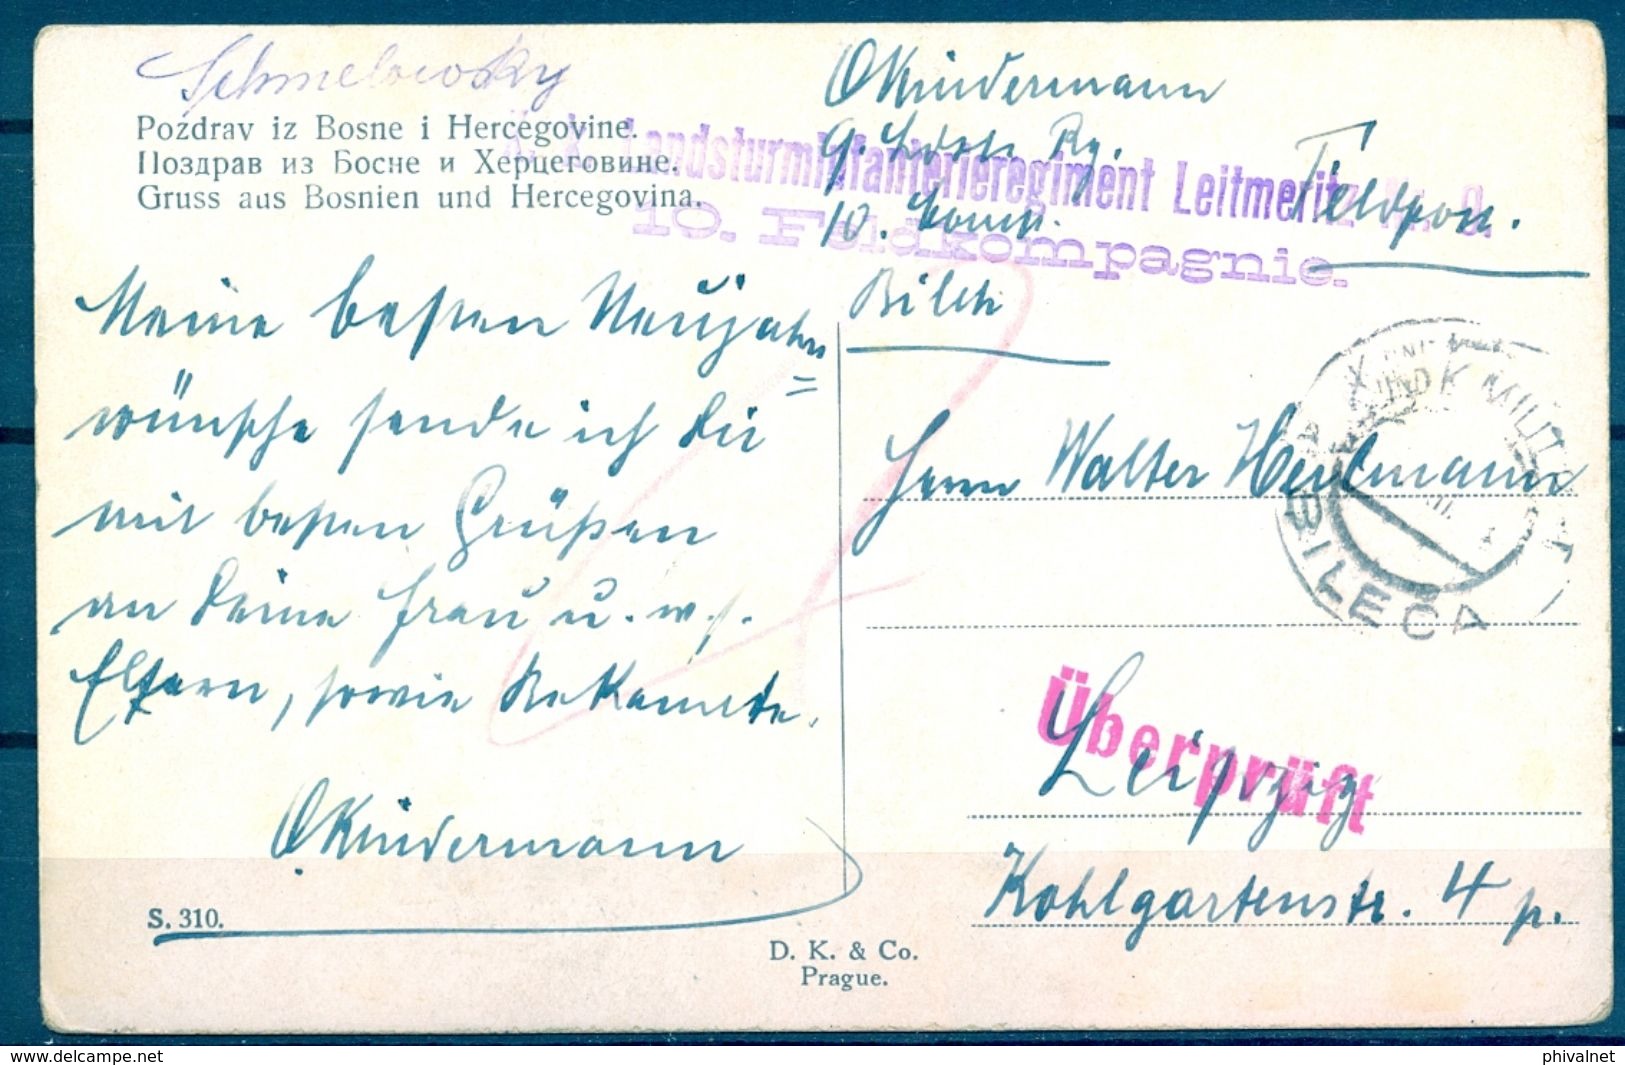 Schmelowsky
Pozdrav iz Bosne i Hercegovine.
Поздрав из Босне и Херцеговине.
Gruss aus Bosnien und Hercegovina.
OKindermann
9. Ldst. Rg. Feldpon.
10. Comp.
k. k. Landsturminfanterieregiment Leitmeritz Nr. 9.
10. Feldkompagnie.
Bilek
Meine besten Neujahrs
=
wünsche sende ich Dir
mit besten Grüßen
an Deine Frau u. w.
Eltern, sowie Bekannte.
OKindermann
K UND K MILIT
BILECA
Herrn Walter
Überprüft
Leipzig
Kohlgartenstr. 4 p.
S. 310.
D. K. & Co.
Prague.
phivalnet